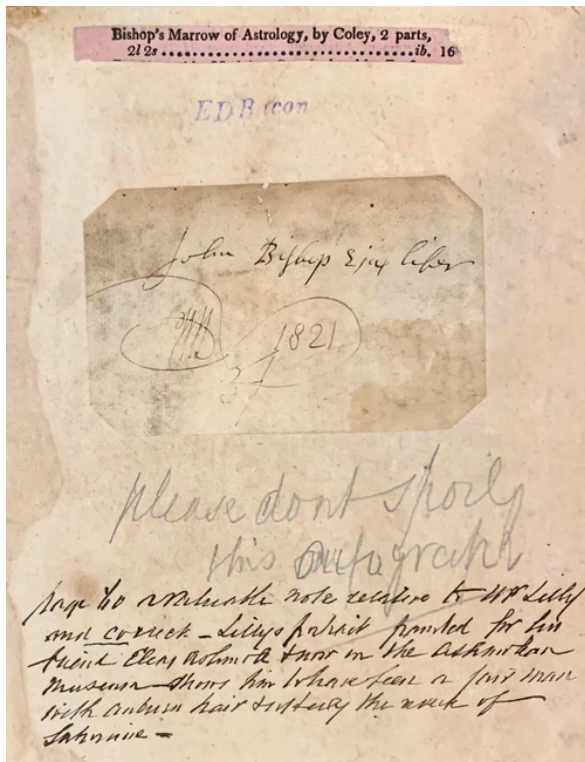 Bishop's Marrow of Astrology, by Coley, 2 parts,
2l 2s ........................................ib. 16
E D Bacon
John Bishop Ejus liber
1821
please dont spoil
this autograph
page 60 a valuable note relative to Wm Lilly
and correct – Lillys portrait painted for his
friend Elias Ashmole & now in the Ashmolean
Museum shows him to have been a fair man
with auburn hair & the mark of